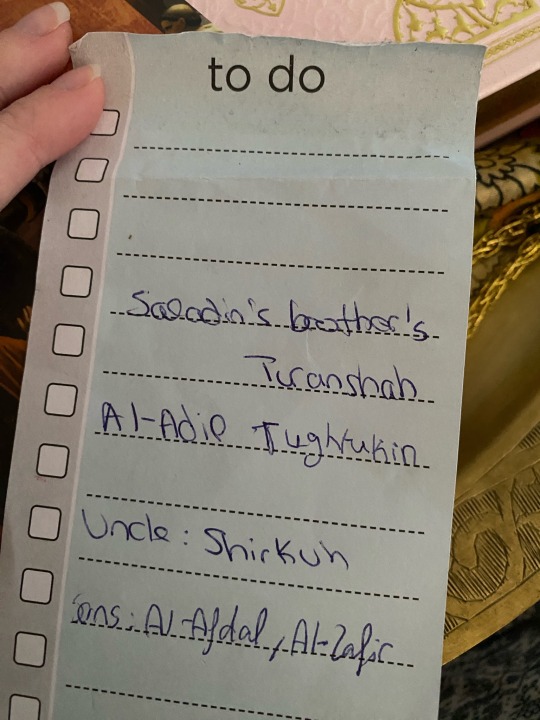 to do
Saladin's brother's
Turanshah
Al-Adil Tughtukin
Uncle: Shirkuh
Sons: Al-Afdal, Al-Zafir